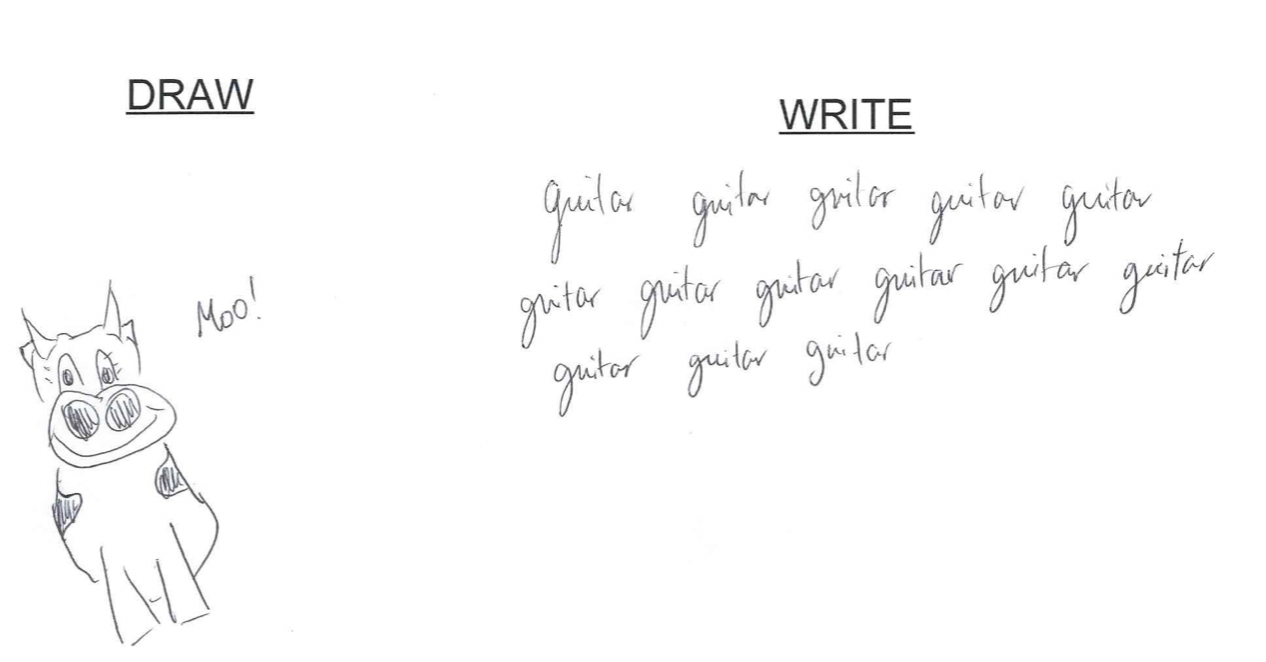 DRAW
WRITE
Moo!
guitar guitar guitar guitar guitar
guitar guitar guitar guitar guitar guitar
guitar guitar guitar